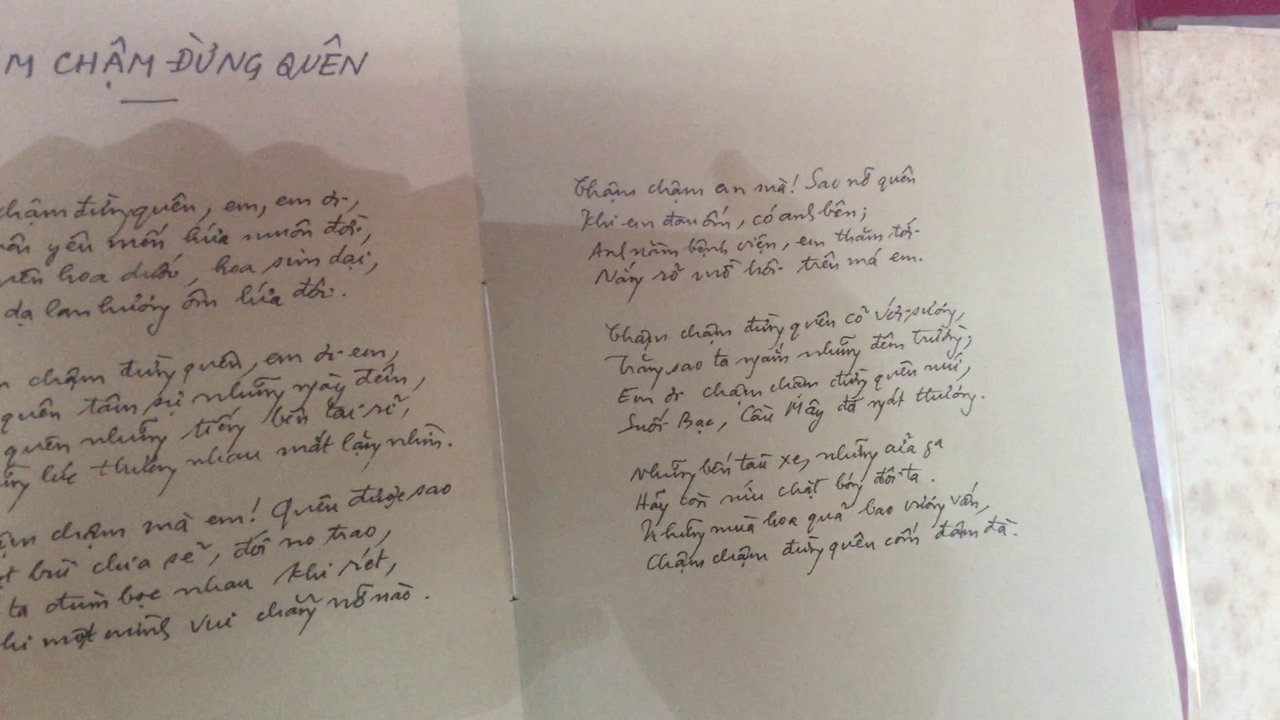 CHẬM ĐỪNG QUÊN
chậm đừng quên, em, em ơi,
yêu mến hứa muôn đời,
hoa dưới, hoa sim dại,
dạ lan hương ôm hứa đôi.
chậm đừng quên, em ơi em,
quên tâm sự những ngày đêm,
quên những tiếng bên tai rỉ,
lúc thương nhau mắt lặng nhìn.
chậm mà em! Quên được sao
bùi chia sẻ, đói no trao,
ta đùm bọc nhau khi rét,
một mình vui chẳng nỡ nào.
Chậm chậm em mà! Sao nỡ quên
Khi em đau ốm, có anh bên;
Anh nằm bệnh viện, em thăm tới
Nắng rỡ mồ hôi trên má em.
Chậm chậm đừng quên cỏ với sương,
Trăng sao ta ngắm những đêm trường;
Em ơi chậm chậm đừng quên núi,
Suối Bạc, Cầu Mây đá ngát thương.
Những bến tàu xe, những cửa ga
Hãy còn níu chặt bóng đôi ta.
Những mùa hoa quả bao vương vấn,
Chậm chậm đừng quên cốn đậm đà.